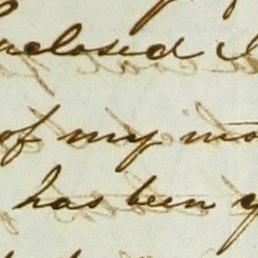 nclosed I
of my mo
has been